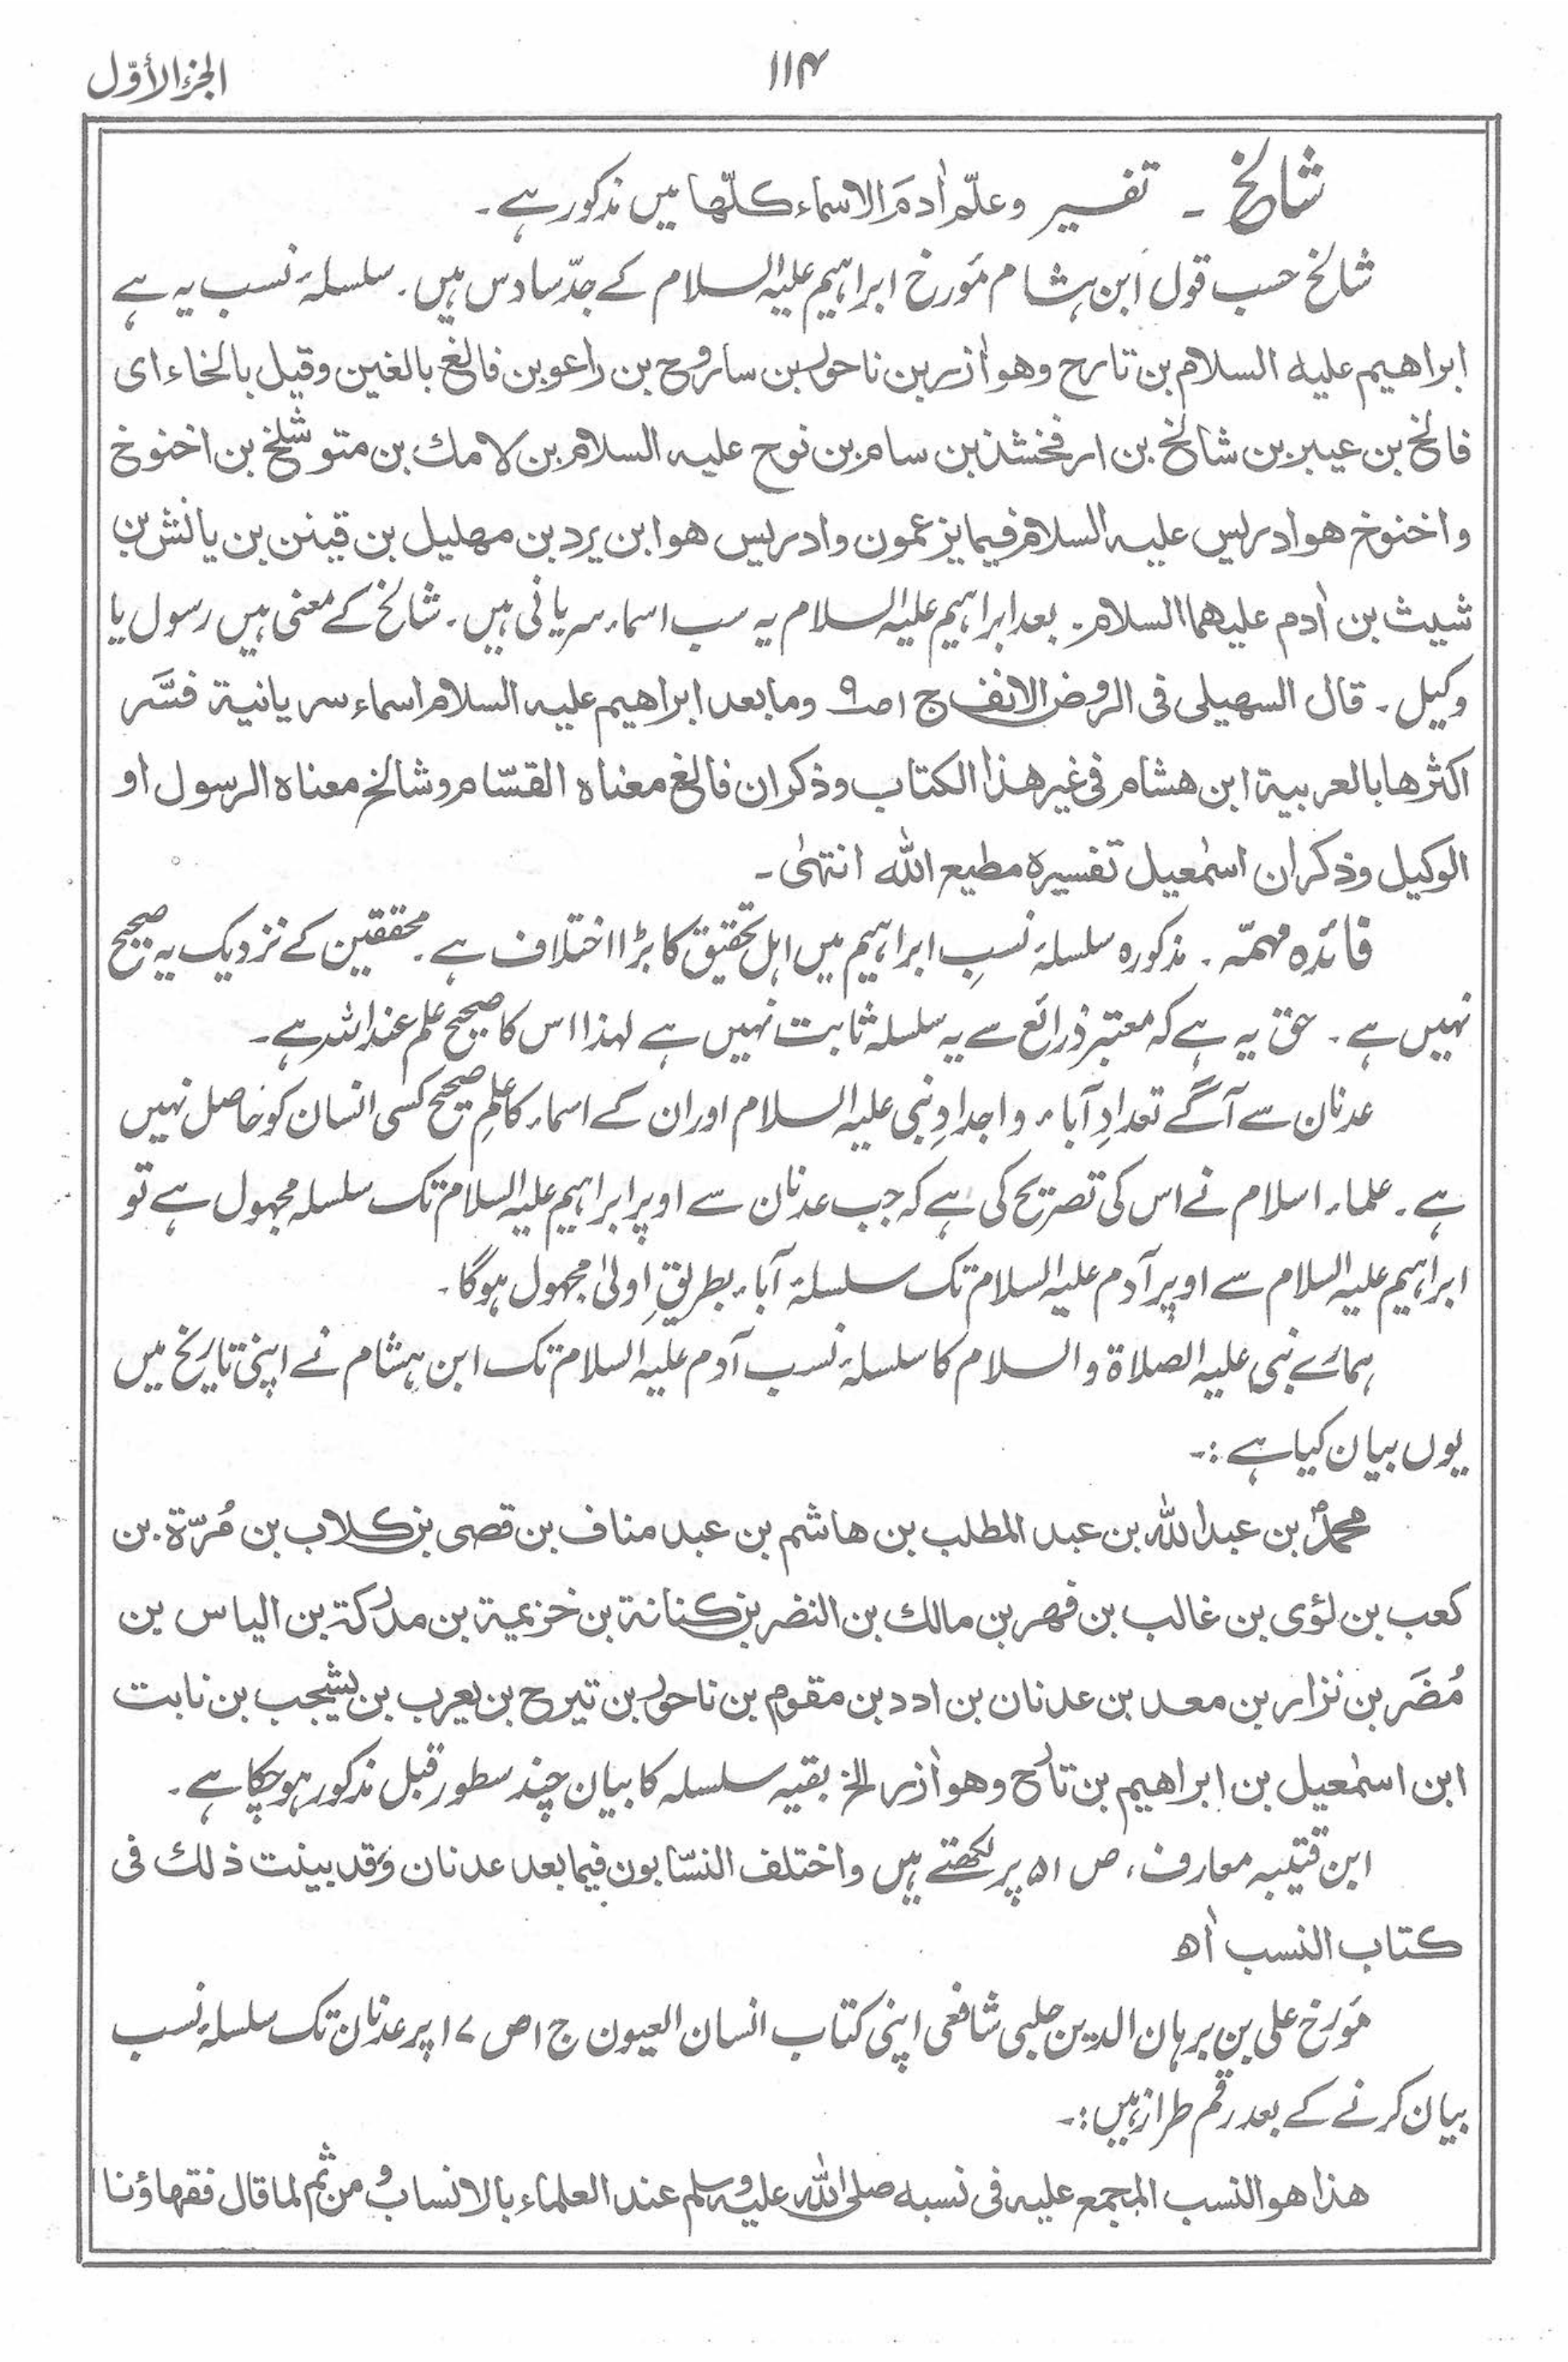 الجزء الأوّل
۱۱۴
شالخ ـ تفسیر وعلّم اٰدمَ الاسماء کلّھا میں مذکور ہے ۔
شالخ حسب قول ابن ہشام مؤرخ ابراہیم علیہ السلام کے جدّ سادس ہیں ۔ سلسلۂ نسب یہ ہے
ابراهیم علیه السلام بن تارح وهو اٰزر بن ناحور بن ساروح بن راعو بن فالغ بالغین وقیل بالخاء ای
فالخ بن عیبر بن شالخ بن ارفخشذ بن سام بن نوح علیه السلام بن لامك بن متوشلخ بن اخنوخ
واخنوخ هو ادریس علیه السلام فیما یزعمون وادریس هو ابن یرد بن مهلیل بن قینن بن یانش بن
شیث بن اٰدم علیهما السلام ۔ بعد ابراہیم علیہ السلام یہ سب اسماء سریانی ہیں ۔ شالخ کے معنی ہیں رسول یا
وکیل ۔ قال السهیلی فی الروض الانف ج ۱ ص ۹ وما بعد ابراهیم علیه السلام اسماء سریانیة فسَّر
اکثرها بالعربیة ابن هشام فی غیر هذا الکتاب وذکر ان فالغ معناه القسّام وشالخ معناه الرسول او
الوکیل وذکر ان اسمٰعیل تفسیره مطیع الله انتهیٰ ۔
فائدہ مہمّہ ۔ مذکورہ سلسلۂ نسبِ ابراہیم میں اہل تحقیق کا بڑا اختلاف ہے ۔ محققین کے نزدیک یہ صحیح
نہیں ہے ۔ حق یہ ہے کہ معتبر ذرائع سے یہ سلسلہ ثابت نہیں ہے لہذا اس کا صحیح علم عند اللہ ہے ۔
عدنان سے آگے تعدادِ آباء و اجدادِ نبی علیہ السلام اور ان کے اسماء کا علمِ صحیح کسی انسان کو حاصل نہیں
ہے ۔ علماء اسلام نے اس کی تصریح کی ہے کہ جب عدنان سے اوپر ابراہیم علیہ السلام تک سلسلہ مجہول ہے تو
ابراہیم علیہ السلام سے اوپر آدم علیہ السلام تک سلسلۂ آباء بطریقِ اولیٰ مجہول ہوگا ۔
ہمارے نبی علیہ الصلاۃ والسلام کا سلسلۂ نسب آدم علیہ السلام تک ابن ہشام نے اپنی تاریخ میں
یوں بیان کیا ہے :۔
محمدؐ بن عبدالله بن عبد المطلب بن هاشم بن عبد مناف بن قصی بن کلاب بن مُرّة بن
کعب بن لؤی بن غالب بن فهر بن مالك بن النضر بن کنانة بن خزیمة بن مدرکة بن الیاس بن
مُضَر بن نزار بن معد بن عدنان بن ادد بن مقوم بن ناحور بن تیرح بن یعرب بن یشجب بن نابت
ابن اسمٰعیل بن ابراهیم بن تارح وهو اٰزر الخ بقیہ سلسلہ کا بیان چند سطور قبل مذکور ہوچکا ہے ۔
ابن قتیبہ معارف ، ص ۵۱ پر لکھتے ہیں واختلف النسّابون فیما بعد عدنان وقد بینت ذلك فی
کتاب النسب اٰھ
مؤرخ علی بن برہان الدین حلبی شافعی اپنی کتاب انسان العیون ج ۱ ص ۱۷ پر عدنان تک سلسلۂ نسب
بیان کرنے کے بعد رقم طراز ہیں :۔
هذا هو النسب المجمع علیه فی نسبه صلی الله علیه وسلم عند العلماء بالانساب ومن ثم لما قال فقهاؤنا